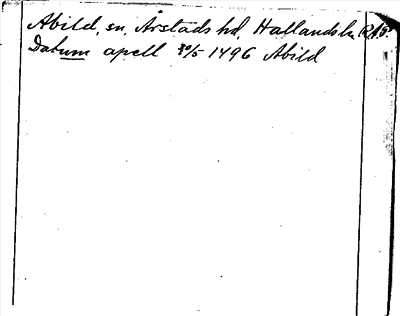 Abild, sn, Årstads hd, Hallands ln RAP.
Datum apell 30/5 1496 Abild